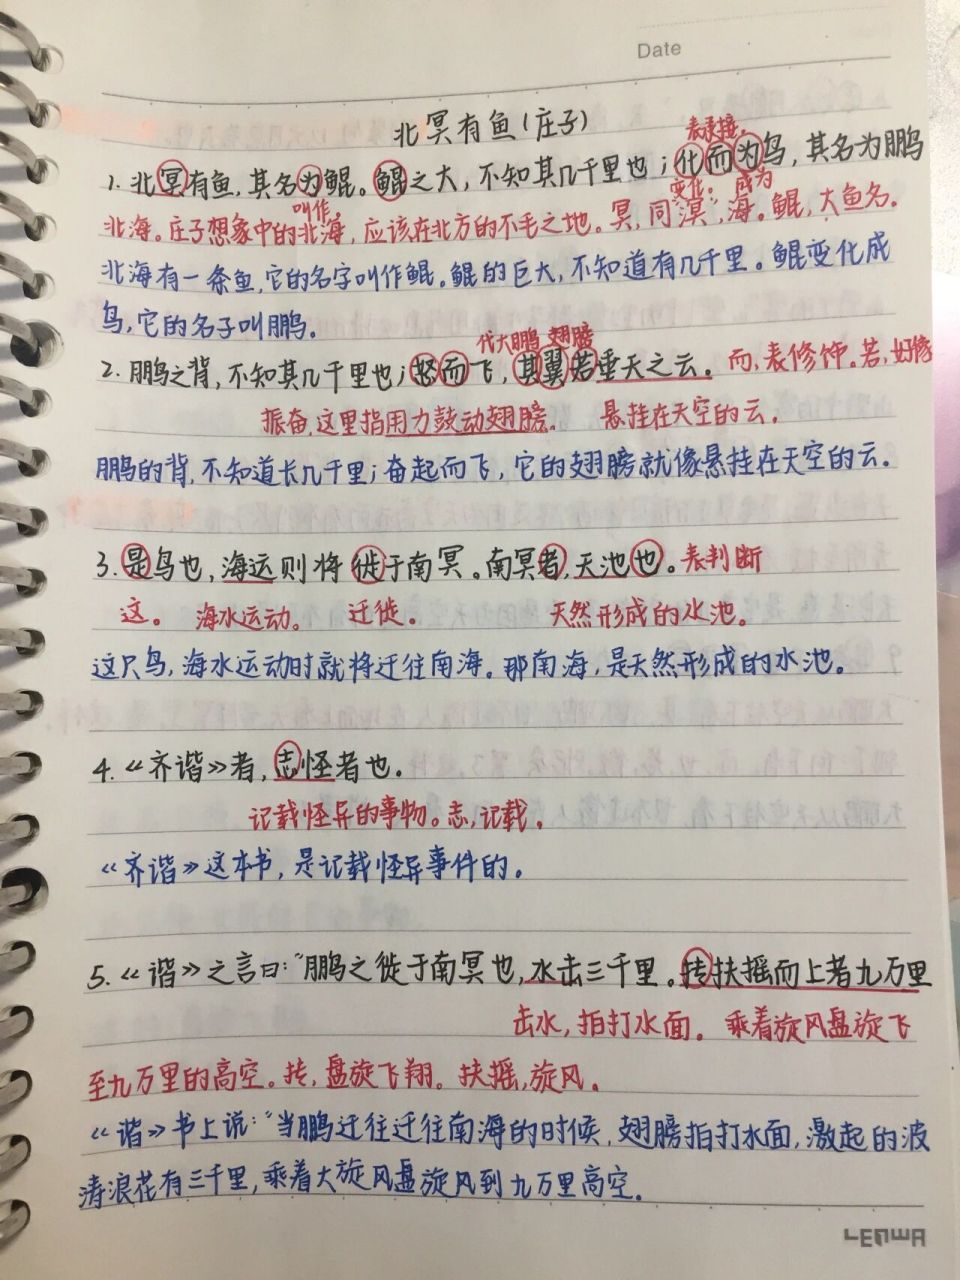 Date
北冥有鱼(庄子)
表承接。
1. 北冥有鱼,其名为鲲。鲲之大,不知其几千里也;化而为鸟,其名为鹏
叫作。 变化。 成为
北海。庄子想象中的北海,应该在北方的不毛之地。冥,同“溟”,海。鲲,大鱼名。
北海有一条鱼,它的名字叫作鲲。鲲的巨大,不知道有几千里。鲲变化成
鸟,它的名子叫鹏。
代大鹏 翅膀
2. 鹏之背,不知其几千里也;怒而飞,其翼若垂天之云。 而,表修饰。若,好像
振奋,这里指用力鼓动翅膀。 悬挂在天空的云。
鹏的背,不知道长几千里;奋起而飞,它的翅膀就像悬挂在天空的云。
3. 是鸟也,海运则将徙于南冥。南冥者,天池也。表判断
这。 海水运动。 迁徙。 天然形成的水池。
这只鸟,海水运动时就将迁往南海。那南海,是天然形成的水池。
4. 《齐谐》者,志怪者也。
记载怪异的事物。志,记载。
《齐谐》这本书,是记载怪异事件的。
5. 《谐》之言曰:“鹏之徙于南冥也,水击三千里。抟扶摇而上者九万里
击水,拍打水面。 乘着旋风盘旋飞
至九万里的高空。抟,盘旋飞翔。扶摇,旋风。
《谐》书上说:“当鹏迁往迁往南海的时候,翅膀拍打水面,激起的波
涛浪花有三千里,乘着大旋风盘旋风到九万里高空。
LENWA